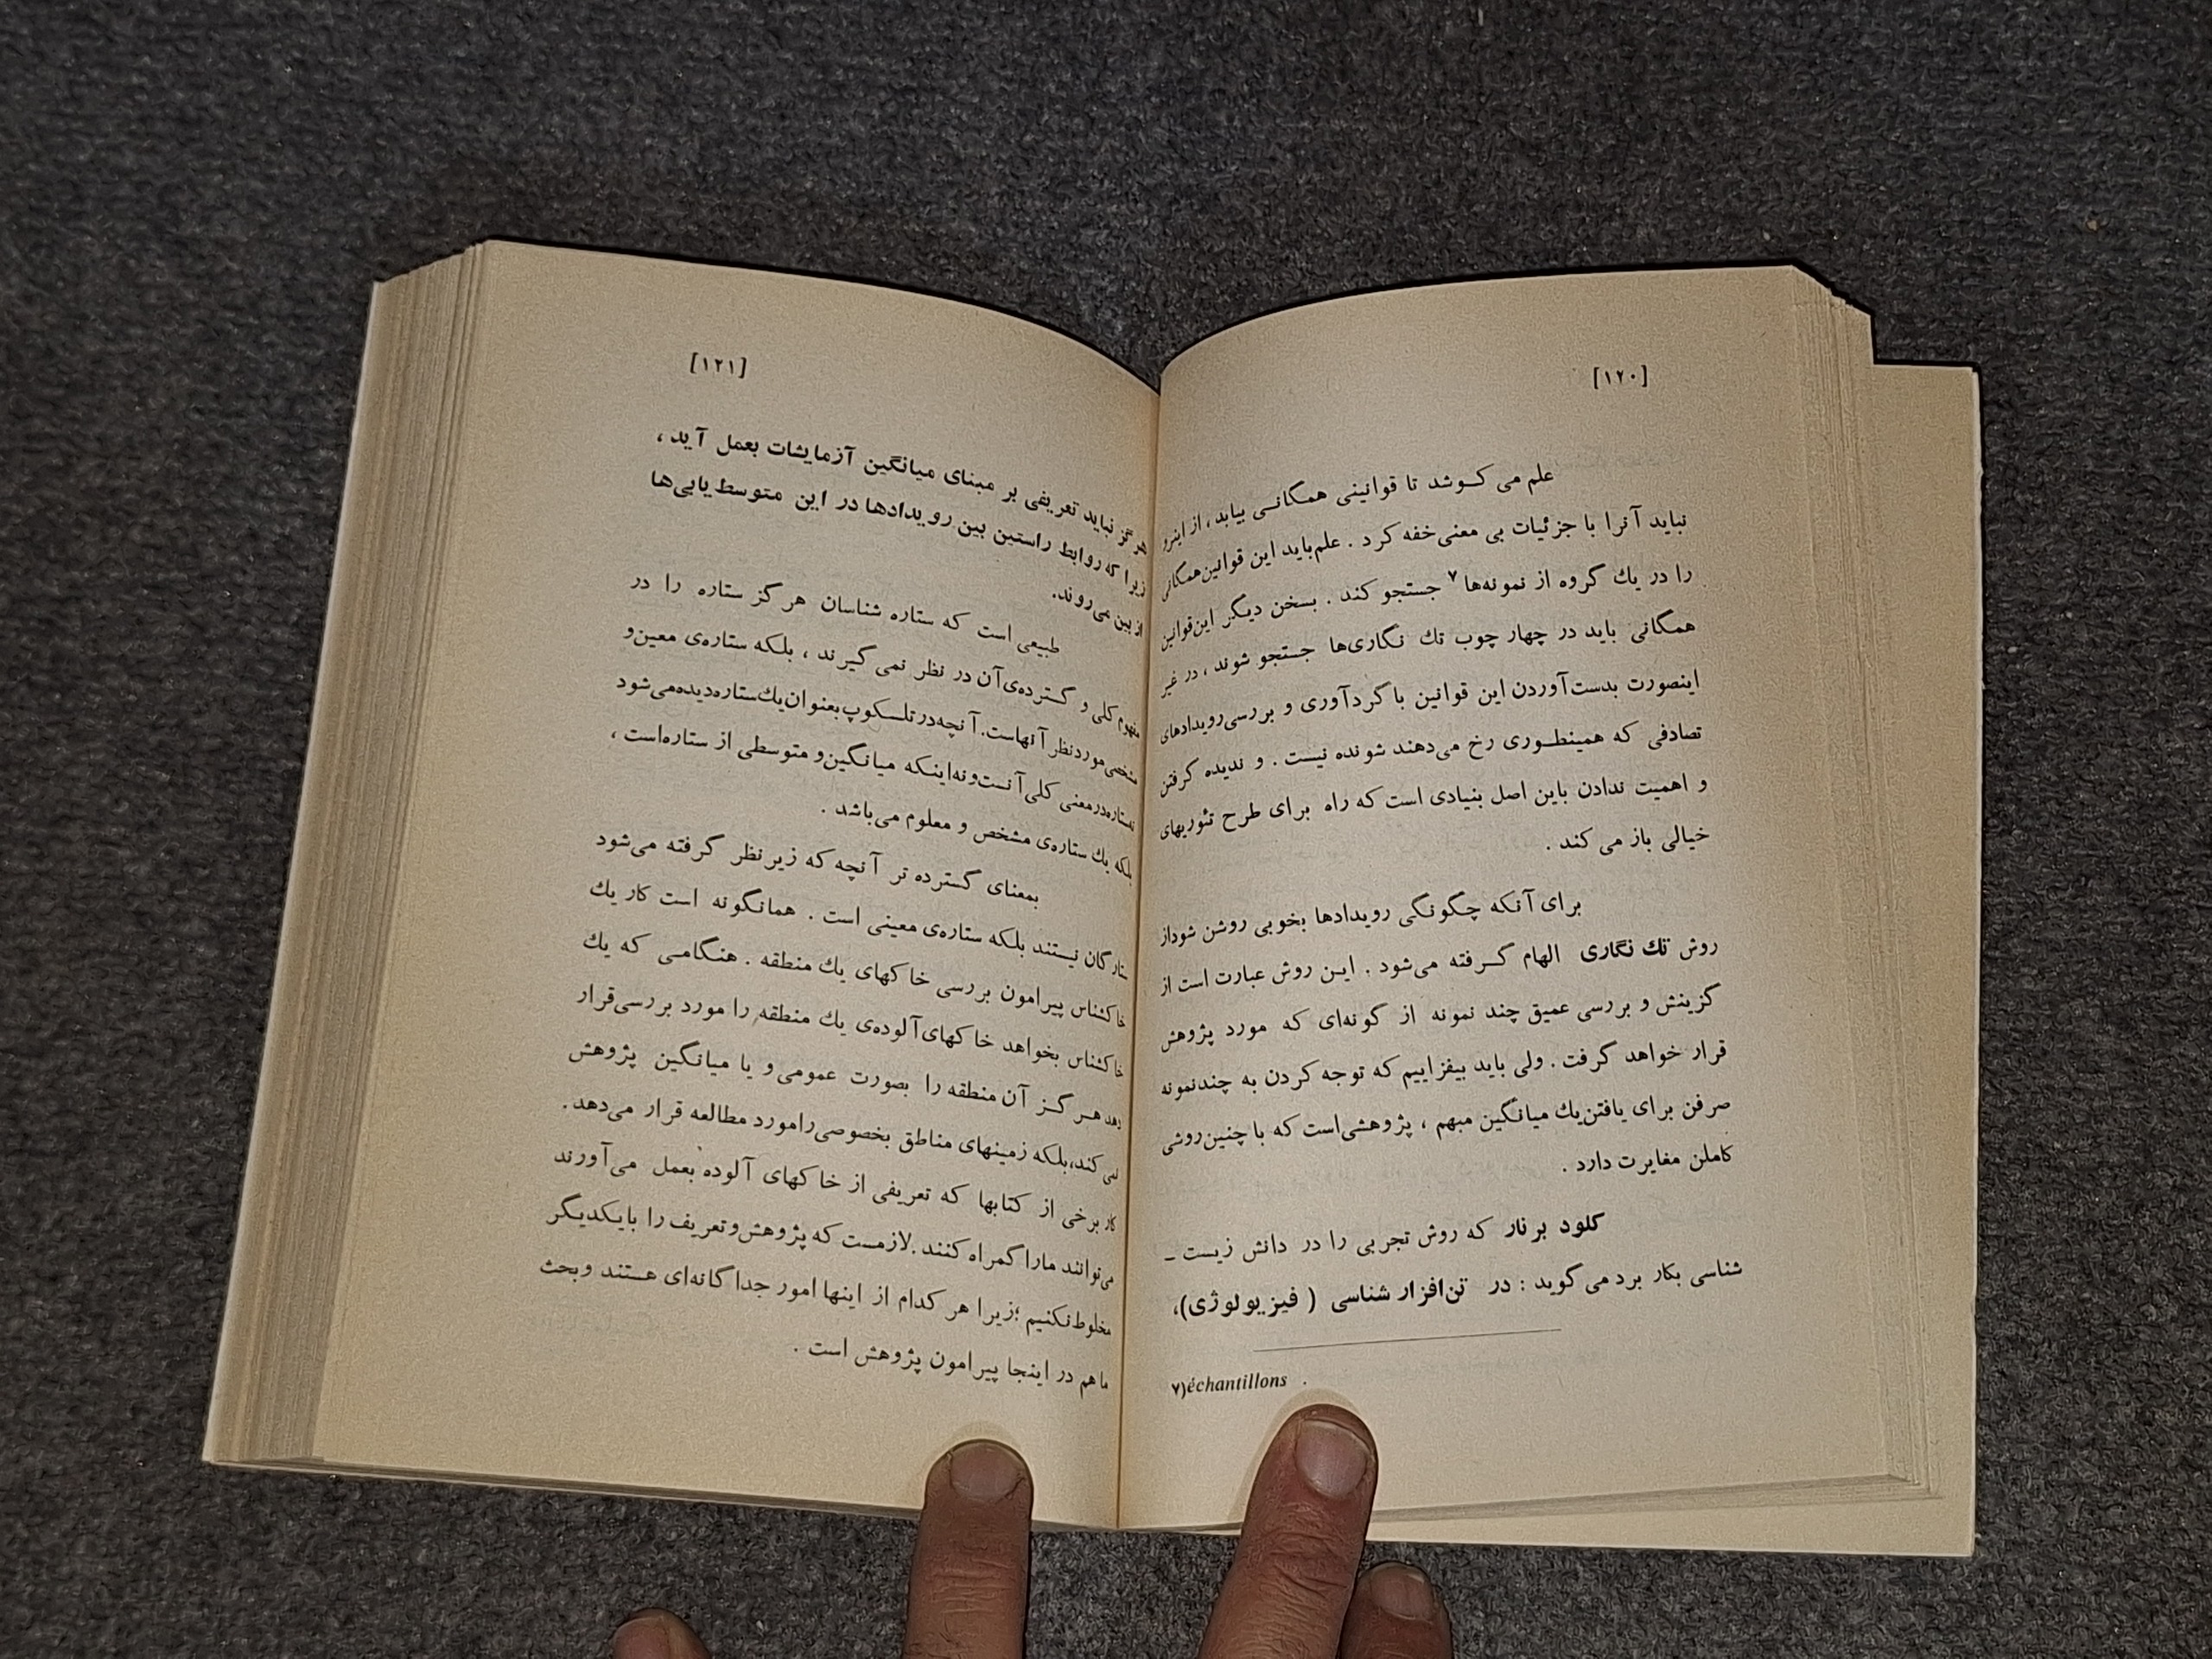 [۱۲۰]
علم می کـوشد تا قوانینی همگانـی بیابد، از اینرو
نباید آنرا با جزئیات بی معنی خفه کرد. علم باید این قوانین همگانی
را در یك گروه از نمونه‌ها۷ جستجو کند. بسخن دیگر این قوانین
همگانی باید در چهار چوب تك نگاری‌ها جستجو شوند، در غیر
اینصورت بدست آوردن این قوانین با گردآوری و بررسی رویدادهای
تصادفی که همینطـوری رخ می‌دهند شونده نیست. و ندیده گرفتن
و اهمیت ندادن باین اصل بنیادی است که راه برای طرح تئوریهای
خیالی باز می کند.
برای آنکه چگونگی رویدادها بخوبی روشن شود از
روش تك نگاری الهام گـرفته می‌شود. ایـن روش عبارت است از
گزینش و بررسی عمیق چند نمونه از گونه‌ای که مورد پژوهش
قرار خواهد گرفت. ولی باید بیفزاییم که توجه کردن به چند نمونه
صرفن برای یافتن یك میانگین مبهم، پژوهشی است که با چنین روشی
کاملن مغایرت دارد.
کلود برنار که روش تجربی را در دانش زیست ـ
شناسی بکار برد می گوید: در تن‌افزار شناسی (فیزیولوژی)،
۷)échantillons .
[۱۲۱]
هرگز نباید تعریفی بر مبنای میانگین آزمایشات بعمل آید،
زیرا که روابط راستین بین رویدادها در این متوسط یابی‌ها
از بین می‌روند.
طبیعی است که ستاره شناسان هرگز ستاره را در
مفهوم کلی و گسترده‌ی آن در نظر نمی گیرند، بلکه ستاره‌ی معین و
مشخصی مورد نظر آنهاست. آنچه در تلسکوپ بعنوان یك ستاره دیده می‌شود
نه ستاره در معنی کلی آنست و نه اینکه میانگین و متوسطی از ستاره است،
بلکه یك ستاره‌ی مشخص و معلوم می‌باشد.
بمعنای گسترده تر آنچه که زیر نظر گرفته می‌شود
ستارگان نیستند بلکه ستاره‌ی معینی است. همانگونه است کار یك
خاکشناس پیرامون بررسی خاکهای یك منطقه. هنگامـی که یك
خاکشناس بخواهد خاکهای آلوده‌ی یك منطقه را مورد بررسی قرار
دهد هـرگـز آن منطقه را بصورت عمومی و یا میانگین پژوهش
نمی کند، بلکه زمینهای مناطق بخصوصی را مورد مطالعه قرار می‌دهد.
کار برخی از کتابها که تعریفی از خاکهای آلوده بعمل می‌آورند
می‌توانند ما را گمراه کنند. لازمست که پژوهش و تعریف را با یکدیگر
مخلوط نکنیم؛ زیرا هر کدام از اینها امور جداگانه‌ای هستند و بحث
ما هم در اینجا پیرامون پژوهش است.